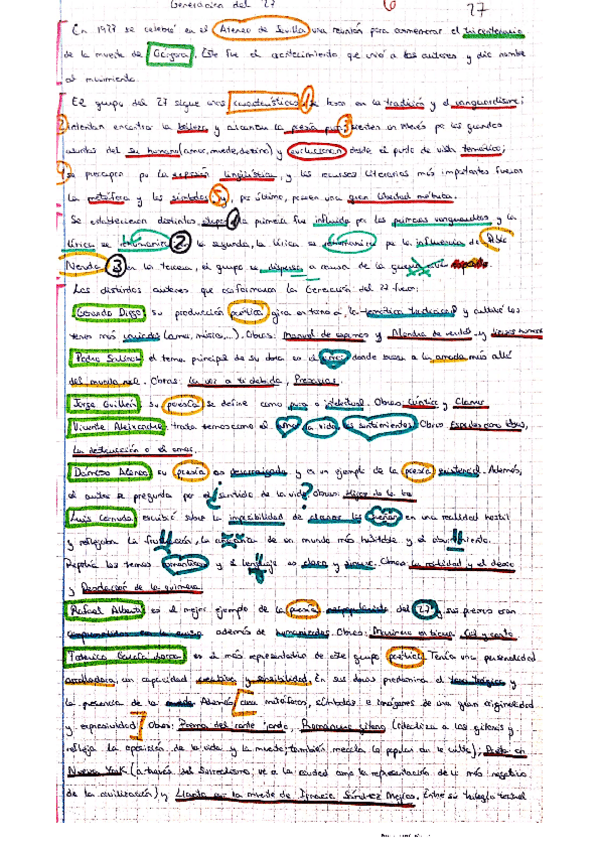 Generación del 27 6 27
En 1927 se celebró en el Ateneo de Sevilla una reunión para conmemorar el tricentenario
de la muerte de Góngora. Este fue el acontecimiento que unió a los autores y dio nombre
al movimiento.
El grupo del 27 sigue unas características 1 se basan en la tradición y el vanguardismo;
2 intentan encontrar la belleza y alcanzar la poesía pura; 3 sienten un interés por los grandes
asuntos del ser humano (amor, muerte, destino) y evolucionan desde el punto de vista temático;
4 se preocupan por la expresión lingüística, y los recursos literarios más importantes fueron
la metáfora y los símbolos 5 y, por último, poseen una gran libertad métrica.
Se establecieron distintas etapas 1 la primera fue influida por las primeras vanguardias y la
lírica se 2 la segunda, la lírica se por la influencia de Pablo
Neruda 3 en la tercera, el grupo se dispersa a causa de la guerra civil
Los distintos autores que conformaron la Generación del 27 fueron:
Gerardo Diego su producción poética gira en torno a la temática tradicional y cultivó los
temas más (amor, música,...). Obras: Manual de espumas y Alondra de verdad y Versos humanos
Pedro Salinas el tema principal de su obra es el amor donde busca a la amada más allá
del mundo real. Obras: La voz a ti debida, Presagios.
Jorge Guillén su poesía se define como pura o intelectual. Obras: Cántico y Clamor
Vicente Aleixandre trata temas como el amor la vida los sentimientos. Obras: Espadas como labios,
La destrucción o el amor.
Dámaso Alonso su poesía es desarraigada y es un ejemplo de la poesía existencial. Además,
el autor se pregunta por el ¿sentido de la vida? Obras: Hijos de la ira
Luis Cernuda escribió sobre la imposibilidad de alcanzar los sueños en una realidad hostil
y reflejaba la frustración, la de un mundo más habitable y el aburrimiento.
los temas románticos y el lenguaje es claro y suave. Obras: La realidad y el deseo
y Desolación de la quimera
Rafael Alberti es el mejor ejemplo de la poesía del 27 y sus poemas eran
además de humanizados. Obras: Marinero en tierra, Cal y canto
Federico García Lorca es el más representativo de este grupo poético. Tenía una personalidad
arrolladora, un capacidad creativa y sensibilidad. En sus obras predomina el tono trágico y
la presencia de la muerte. Además usa metáforas, símbolos e imágenes de una gran originalidad
y expresividad. Obras: Poema del cante jondo, Romancero gitano (dedica a los gitanos y
refleja la oposición de la vida y la muerte; también mezcla lo popular con lo culto); Poeta en
Nueva York (a través del Surrealismo; ve a la ciudad como la representación de lo más negativo
de la civilización) y Llanto por la muerte de Ignacio Sánchez Mejías. Entre su trilogía teatral